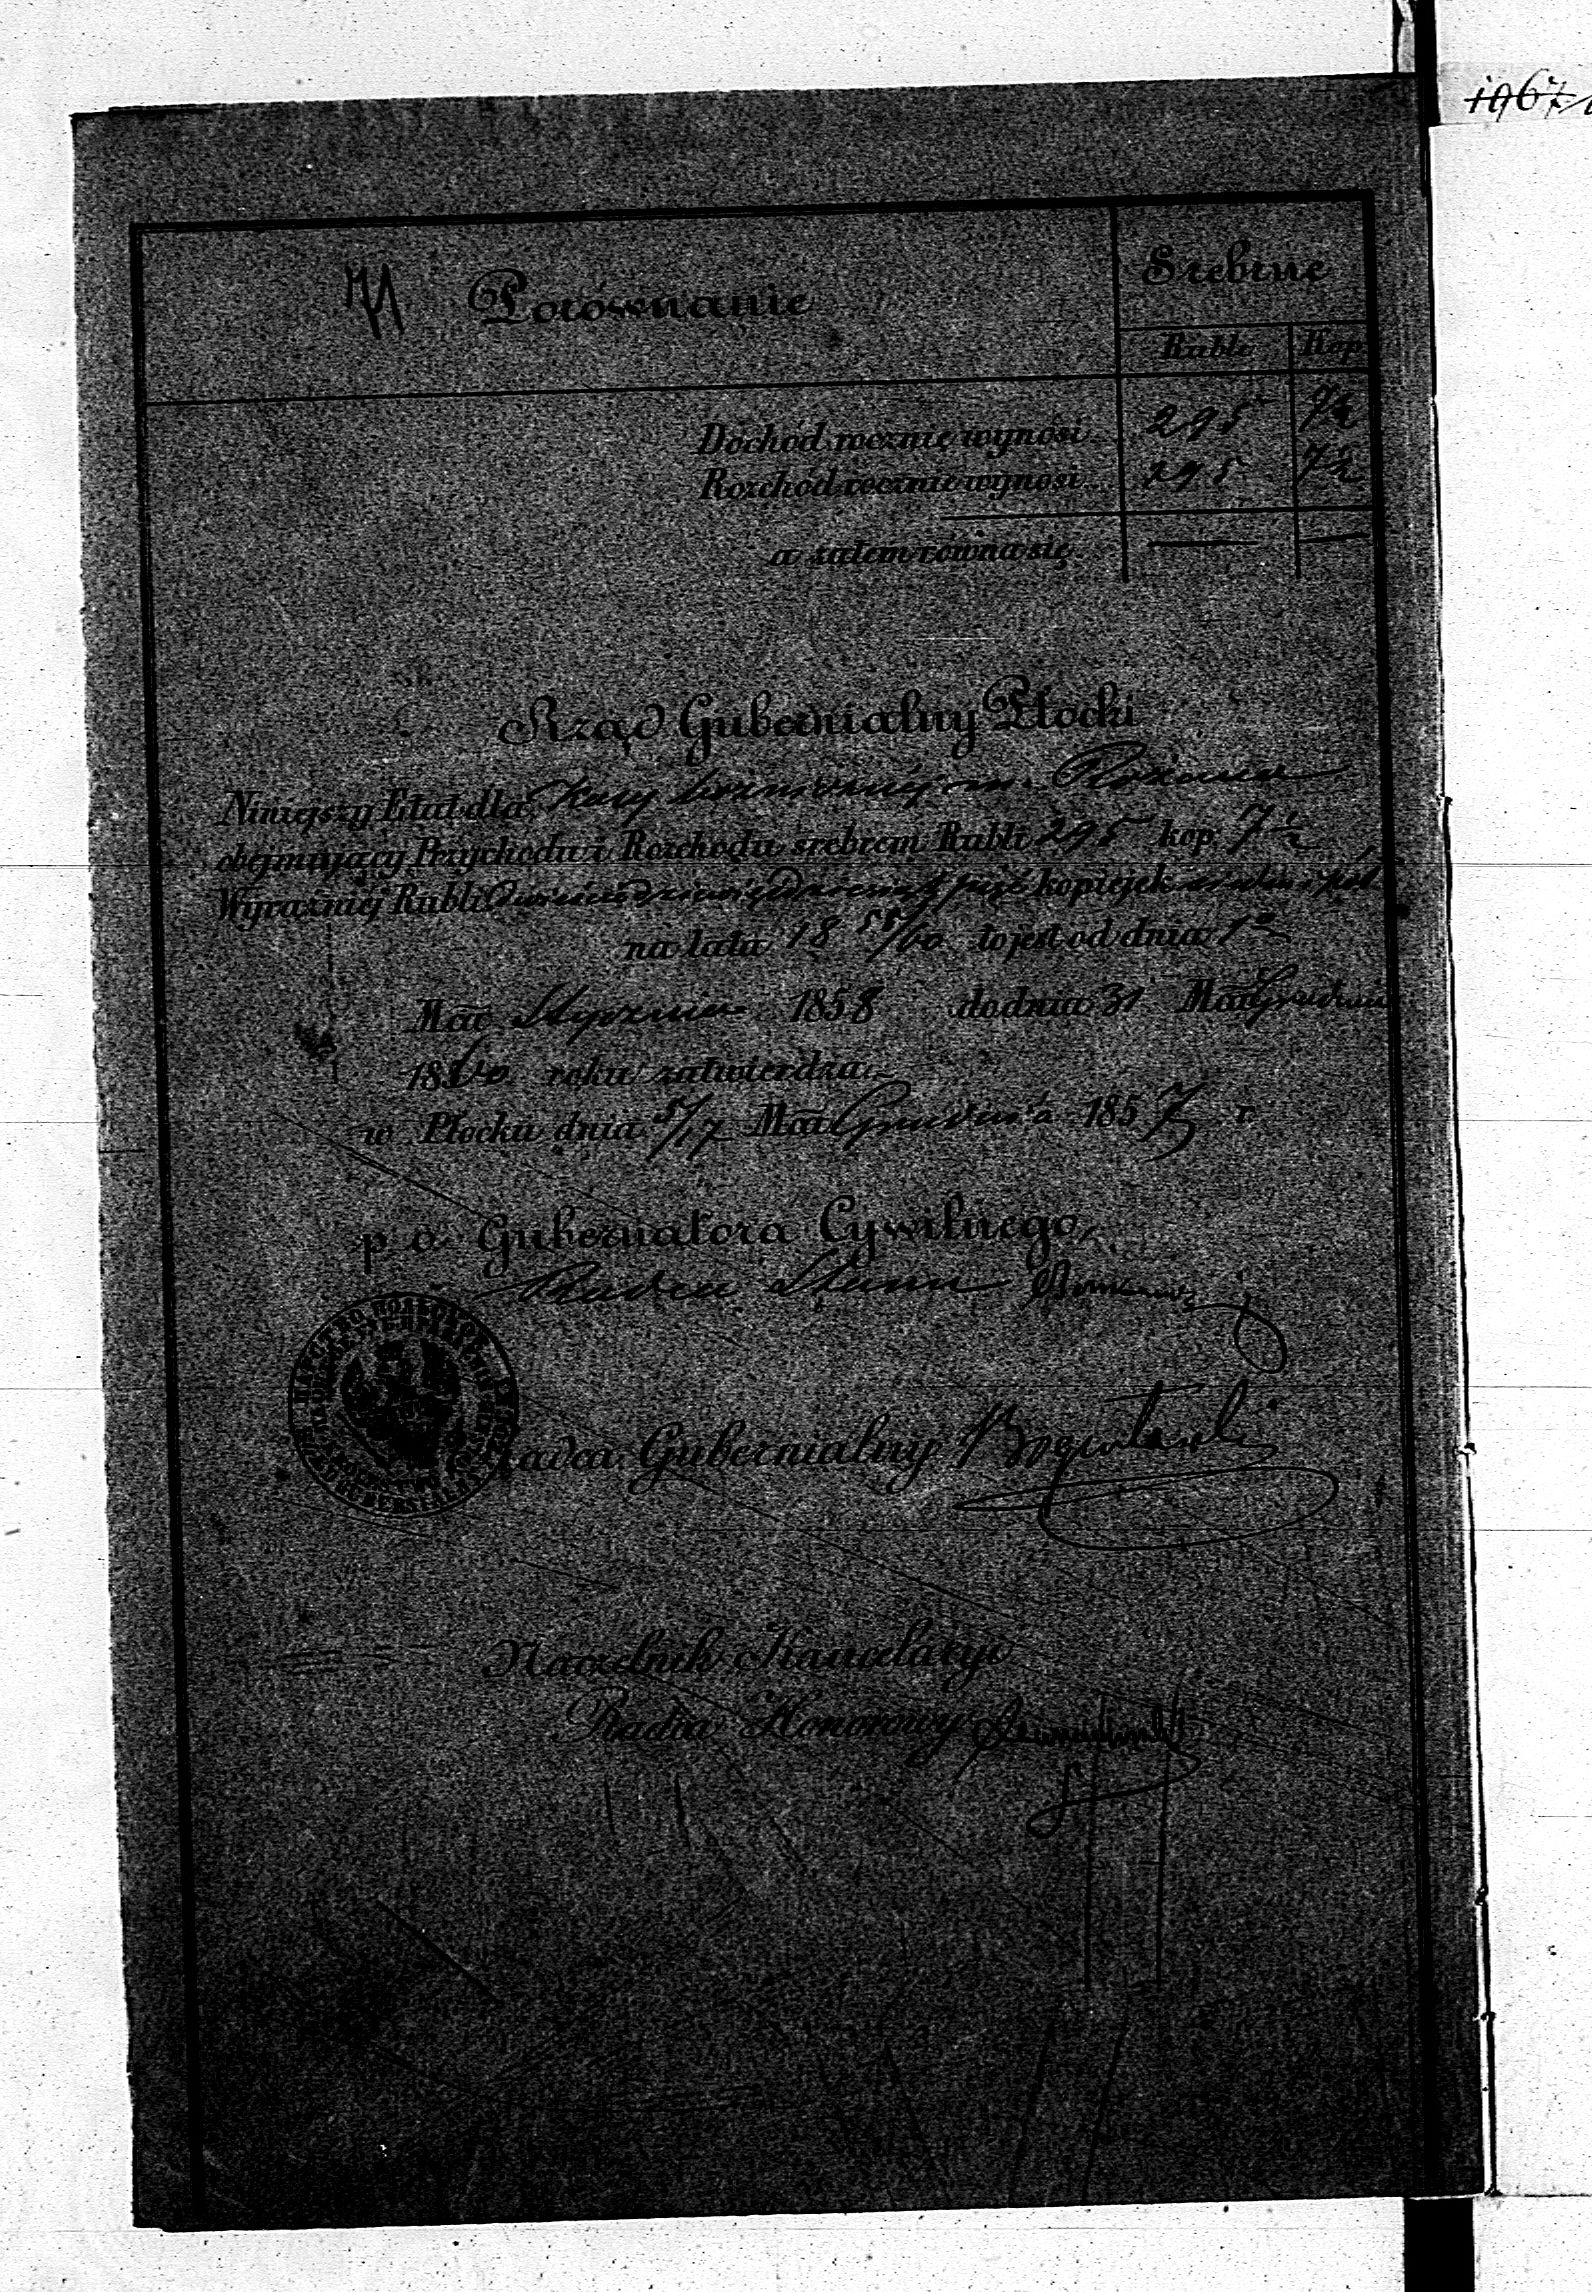 1967
Porównanie
Srebrne
Ruble Kop.
Dochód rocznie wynosi 295 7½
Rozchód rocznie wynosi 295 7½
a zatem równa się — —
Rząd Gubernialny Płocki
Niniejszy Etat dla Kasy Bożniczéj m. Różana
obejmujący Przychodu i Rozchodu srebrem Rubli 295 kop. 7½
Wyraźniej Rubli Dwieście dziewięćdziesiąt pięć kopiejek siedm i pół
na lata 18 58/60 to jest od dnia 1o
Mca Stycznia 1858 do dnia 31 Mca Grudnia
1860 roku zatwierdza
w Płocku dnia 5/17 Mca Grudnia 1857 r.
p. o. Gubernatora Cywilnego,
Radca Stanu
ЦАРСТВО ПОЛЬСКОЕ
Radca Gubernialny
Naczelnik Kancelaryi
Radca Honorowy